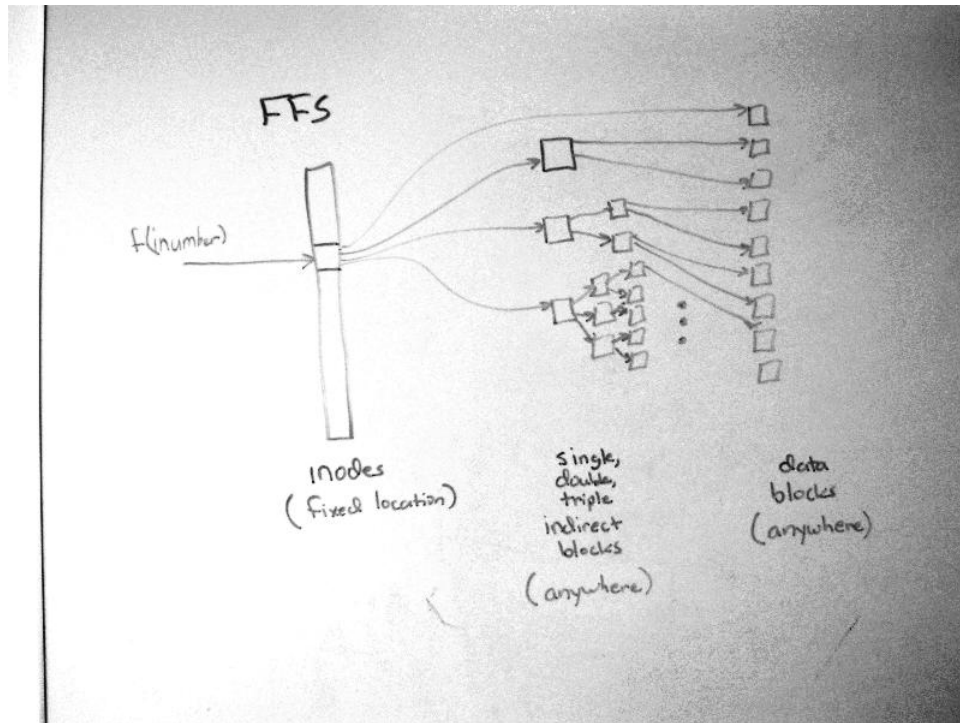 FFS
f(inumber)
inodes
(fixed location)
single,
double,
triple
indirect
blocks
(anywhere)
data
blocks
(anywhere)